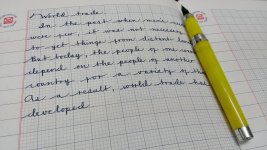 World trade
In the past when men's
were few, it was not necessary
to get things from distant
But today, the people of one
depend on the people of another
country for a variety of
As a result, world trade has
developed